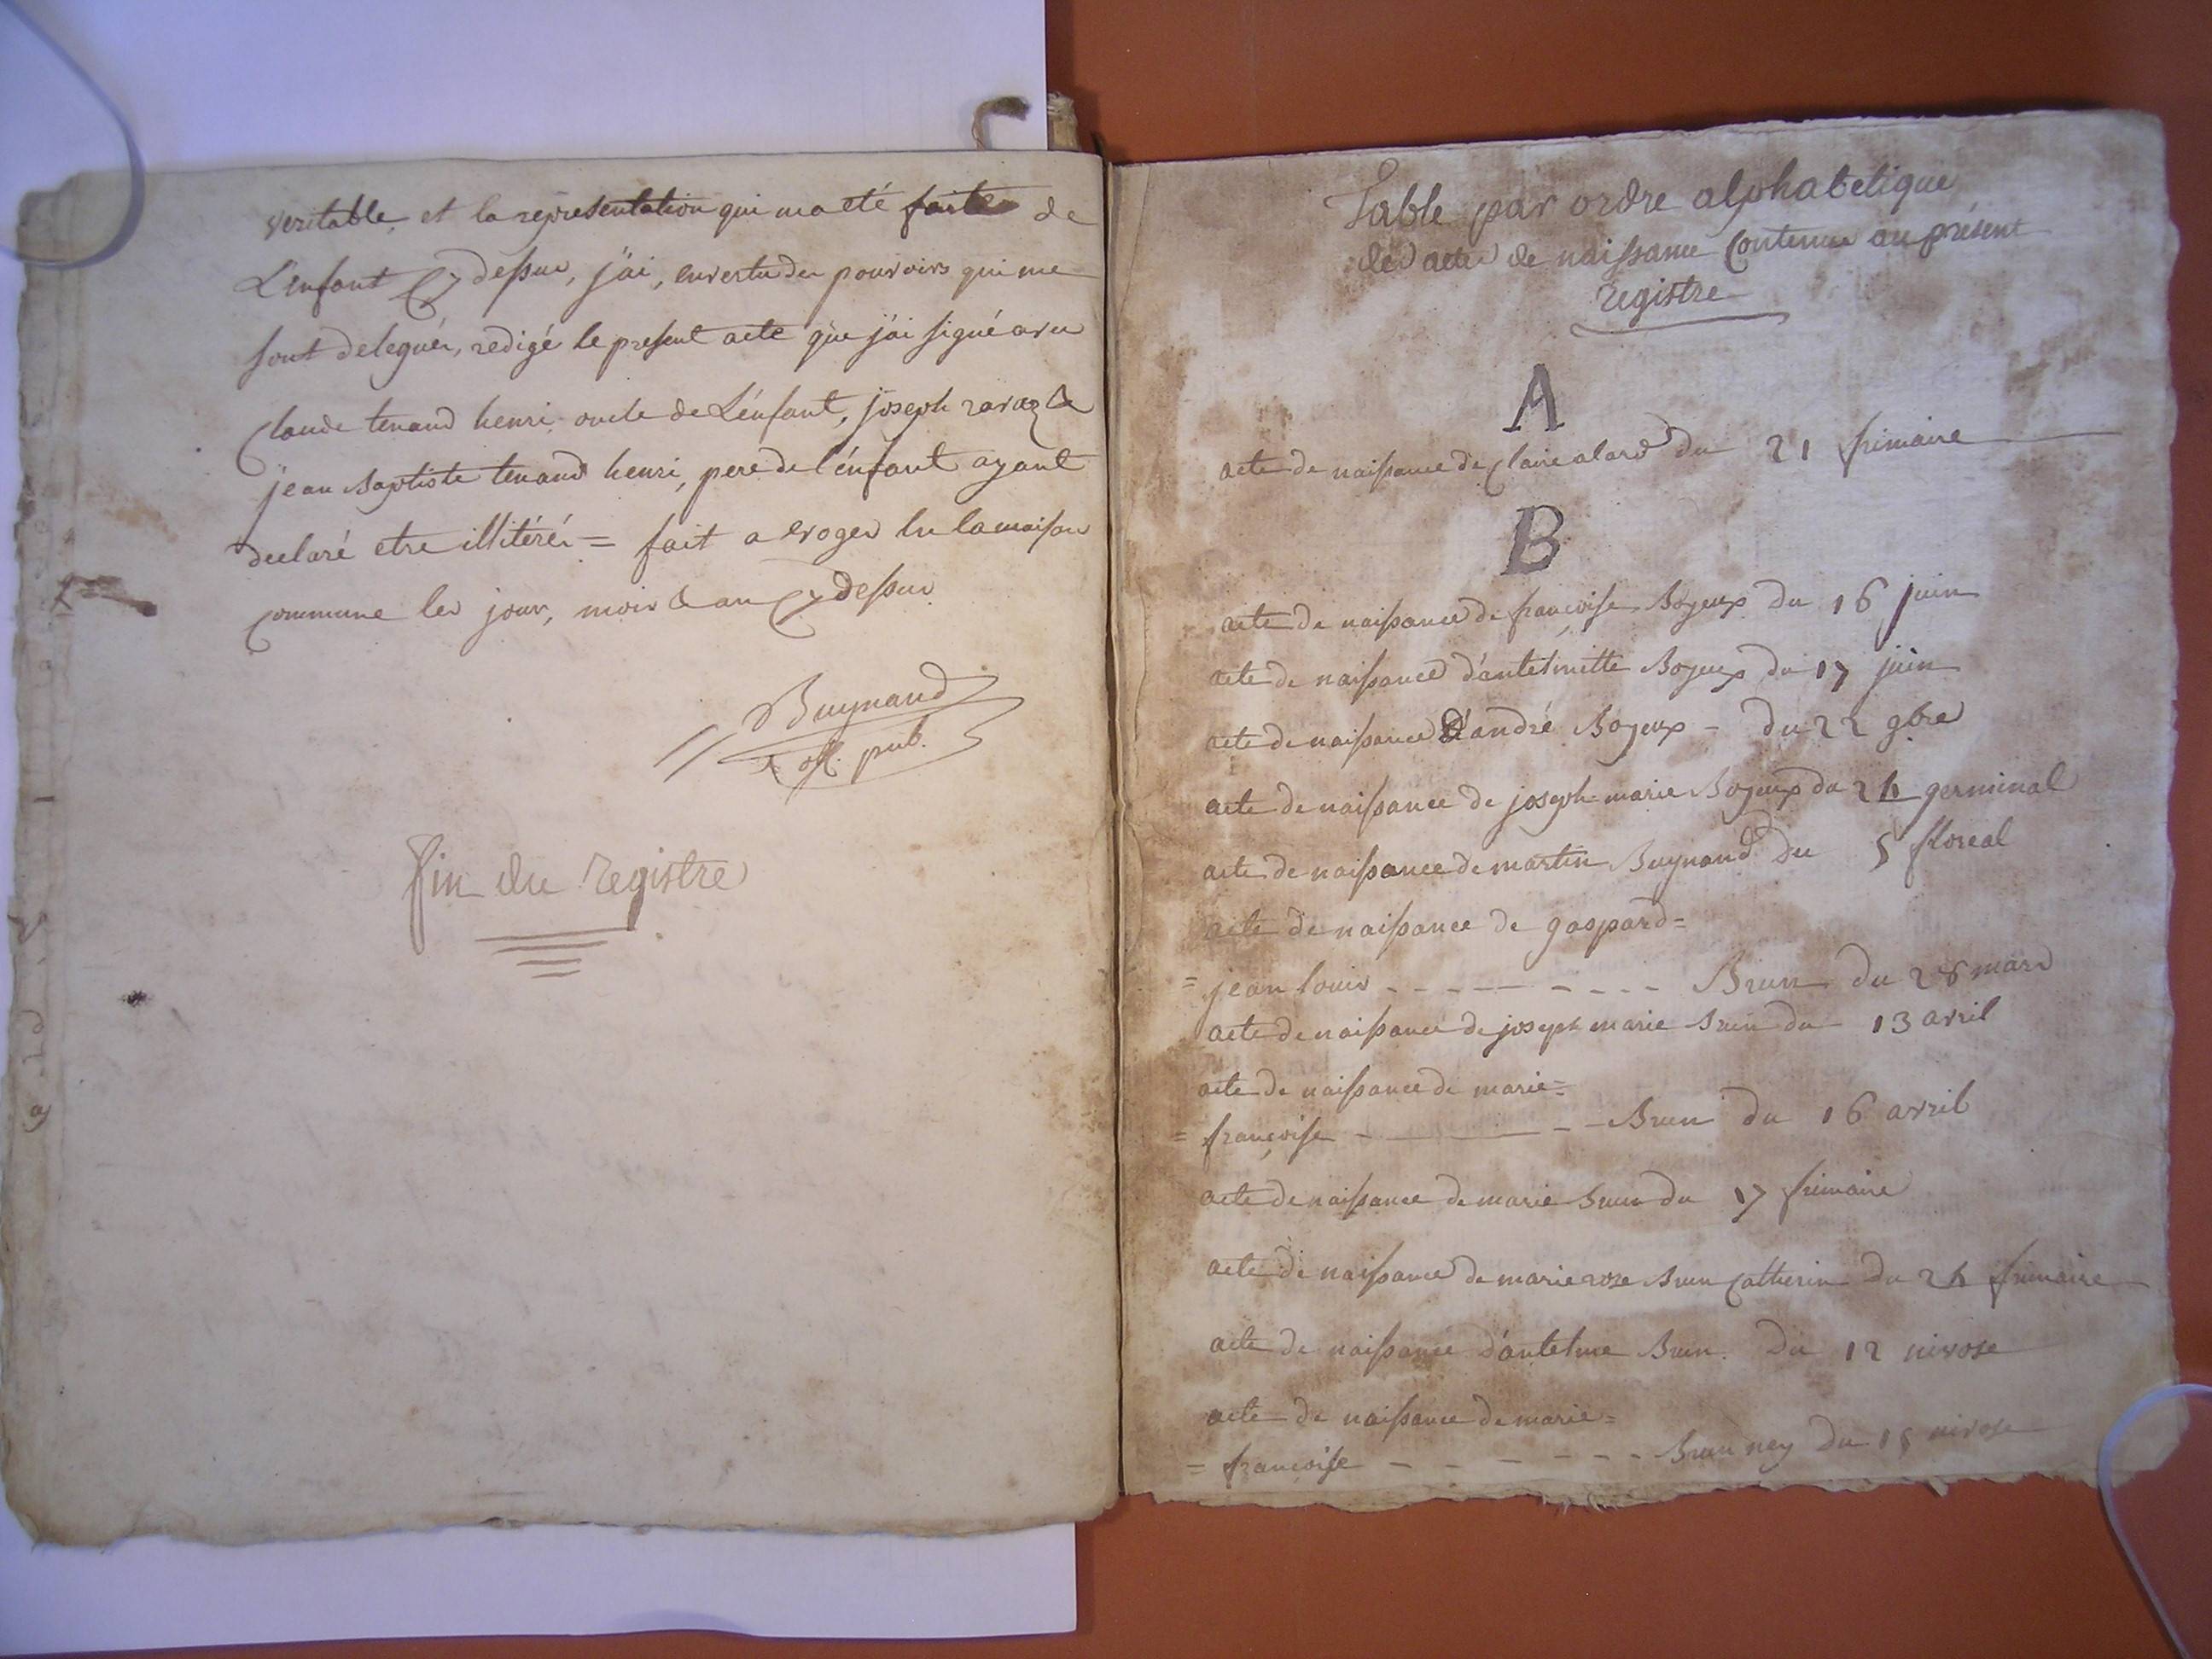 veritable, et la representation qui ma eté faite de
L'enfant Cy dessus, j'ai, en vertu des pouvoirs qui me
sont delegués, redigé le present acte que j'ai signé avec
Claude tenand henri oncle de L'enfant, joseph ravaz &
jean Baptiste tenand henri, pere de l'enfant ayant
declaré etre illitérés = fait a evoges la maison
Commune les jour, mois & an Cy dessus
Buynand
off. pub.
fin du registre
Table par ordre alphabetique
des actes de naissance Contenus au présent
registre
A
acte de naissance de Claire alard du 21 frimaire
B
acte de naissance de françoise Boyeux du 16 juin
acte de naissance d'antelmette Boyeux du 17 juin
acte de naissance d'andré Boyeux - du 22 9bre
acte de naissance de joseph-marie Boyeux du 24 germinal
acte de naissance de martin Buynand du 5 floreal
acte de naissance de gaspard=
= jean louis - - - - - - - - Brun du 28 mars
acte de naissance de joseph marie Brun du 13 avril
acte de naissance de marie=
= françoise - - - - Brun du 16 avril
acte de naissance de marie Brun du 17 frimaire
acte de naissance de marie roze Brun Catherin du 24 frimaire
acte de naissance d'antelme Brun. Du 12 nivose
acte de naissance de marie=
= françoise - - - - - - - Brun ney du 15 nivose